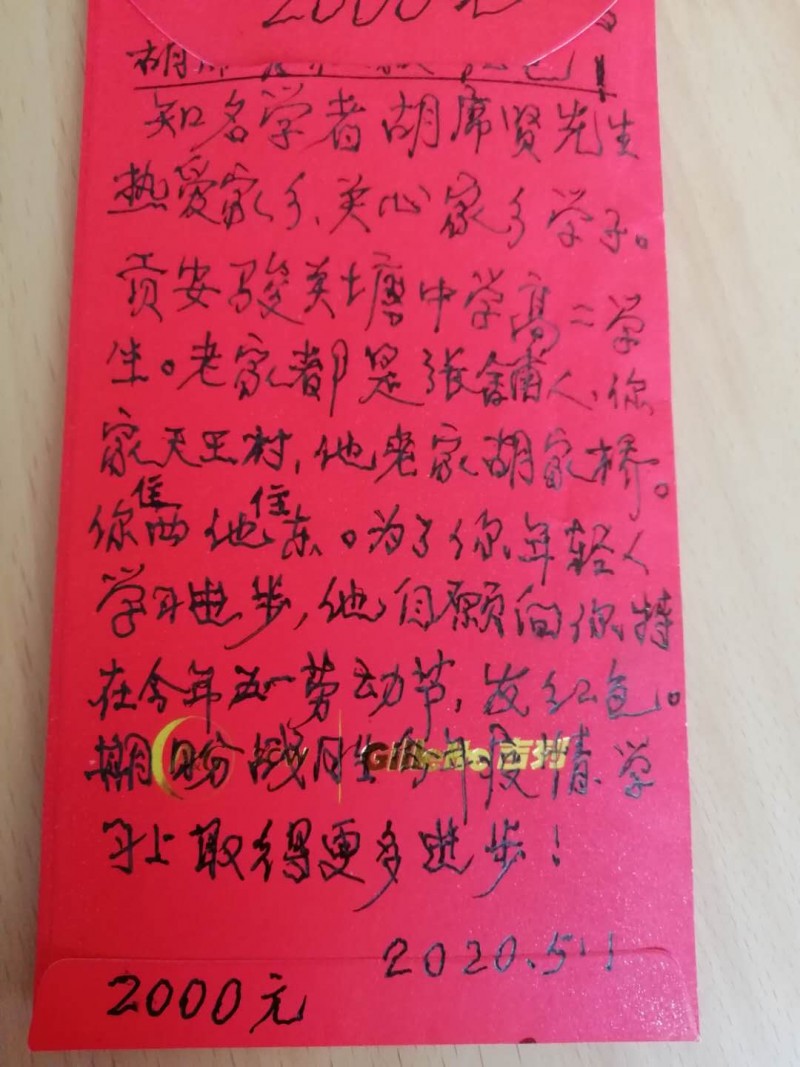 2000元
胡席贤 红包!
知名学者胡席贤先生
热爱家乡、关心家乡学子。
贡安骏关塘中学高二学
生。老家都是张舍甫人、你
家天王村,他老家胡家桥。
你住西他住东。为了你年轻人
学习进步,他自愿向你特
在今年五一劳动节,发红包。
期盼战胜今年疫情、学
Gillette吉列
习上取得更多进步!
2020.5.1
2000元